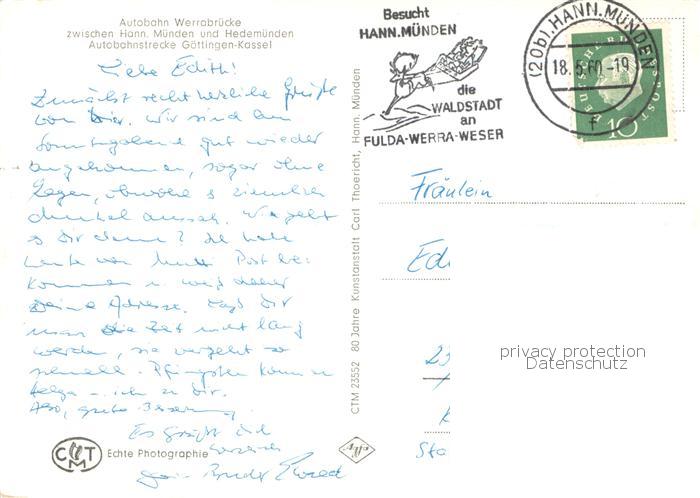 Autobahn Werrabrücke
zwischen Hann. Münden und Hedemünden
Autobahnstrecke Göttingen-Kassel
Liebe Edith!
Zunächst recht herzliche Grüße
von hier. Wir sind am
Sonnabend gut wieder
angekommen, sogar ohne
Regen, obwohl es ziemlich
dunkel aussah. Wie geht
es Dir denn? Ich habe
heute von Mutti Post be-
kommen u. weiß daher
Deine Adresse. Laß Dir
nur die Zeit nicht lang
werden, sie vergeht so
schnell. Pfingsten kommen
Helga u. ich zu Dir.
Also, gute Besserung.
Es grüßt Dich
herzlich
Dein Bruder
CMT
Echte Photographie
CTM 23552 80 Jahre Kunstanstalt Carl Thoericht, Hann. Münden
Agfa
Besucht
HANN.MÜNDEN
die
WALDSTADT
an
FULDA-WERRA-WESER
(20b) HANN. MÜNDEN
18.5.60-19
f
DEUTSCHE BUNDESPOST
10
Fräulein
Ed
23
privacy protection
Datenschutz